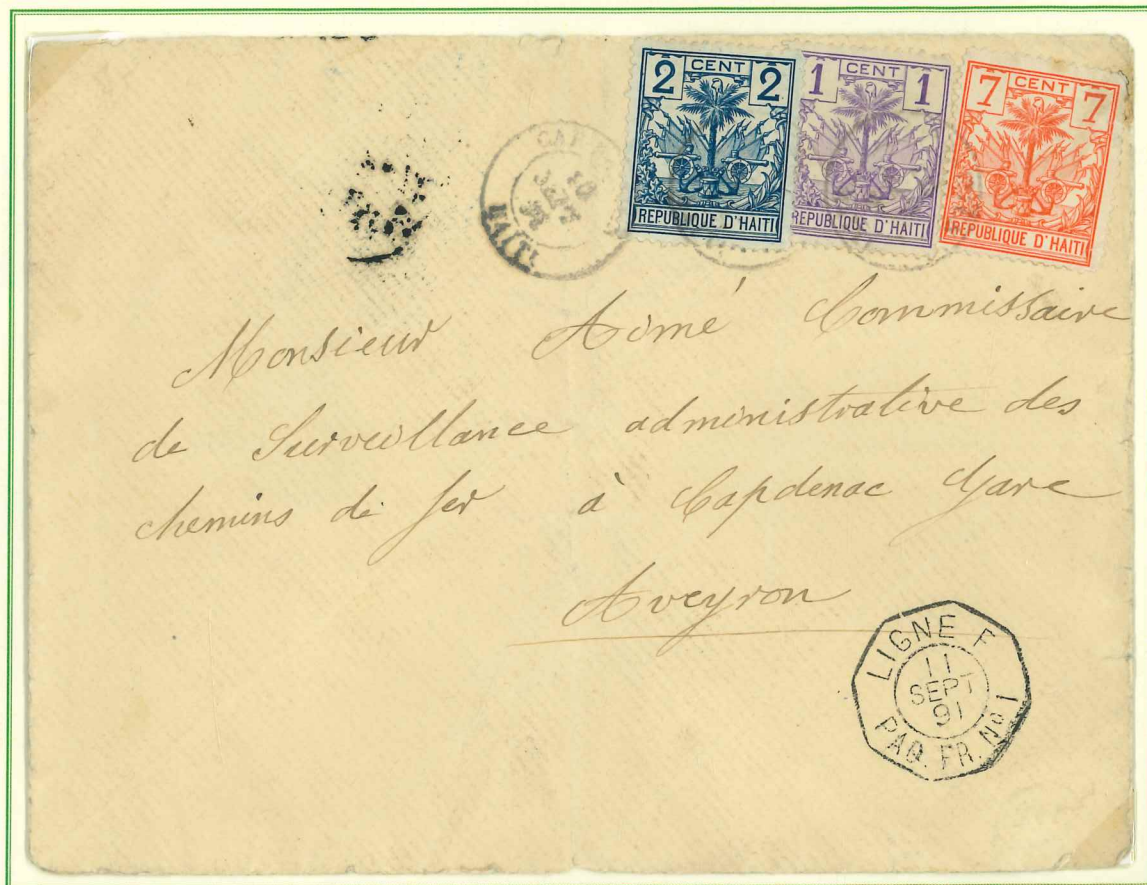 2 CENT 2
REPUBLIQUE D'HAITI
1 CENT 1
REPUBLIQUE D'HAITI
7 CENT 7
REPUBLIQUE D'HAITI
CAP
10
SEPT
91
HAITI
Monsieur Aimé Commissaire
de Surveillance administrative des
chemins de fer à Capdenac Gare
Aveyron
LIGNE F
11
SEPT
91
PAQ. FR. Nº 1